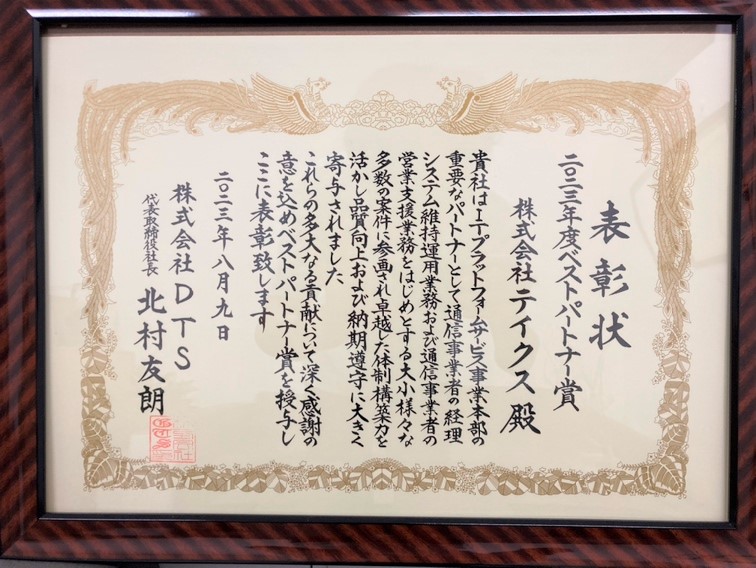 表彰状
二〇二三年度ベストパートナー賞
株式会社テイクス殿
貴社はITプラットフォームサービス事業本部の
重要なパートナーとして通信事業者の経理
システム維持運用業務および通信事業者の
営業支援業務をはじめとする大小様々な
多数の案件に参画され卓越した体制構築力を
活かし品質向上および納期遵守に大きく
寄与されました
これらの多大なる貢献について深く感謝の
意を込めベストパートナー賞を授与し
ここに表彰致します
二〇二三年八月九日
株式会社DTS
代表取締役社長 北村友朗